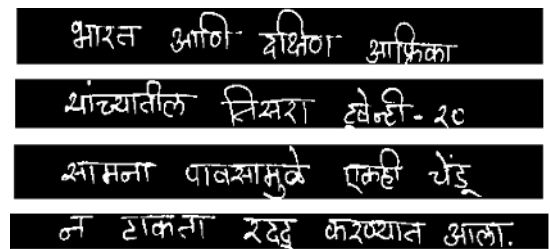 भारत आणि दक्षिण आफ्रिका
यांच्यातील तिसरा ट्वेन्टी-२०
सामना पावसामुळे एकही चेंडू
न टाकता रद्द करण्यात आला.